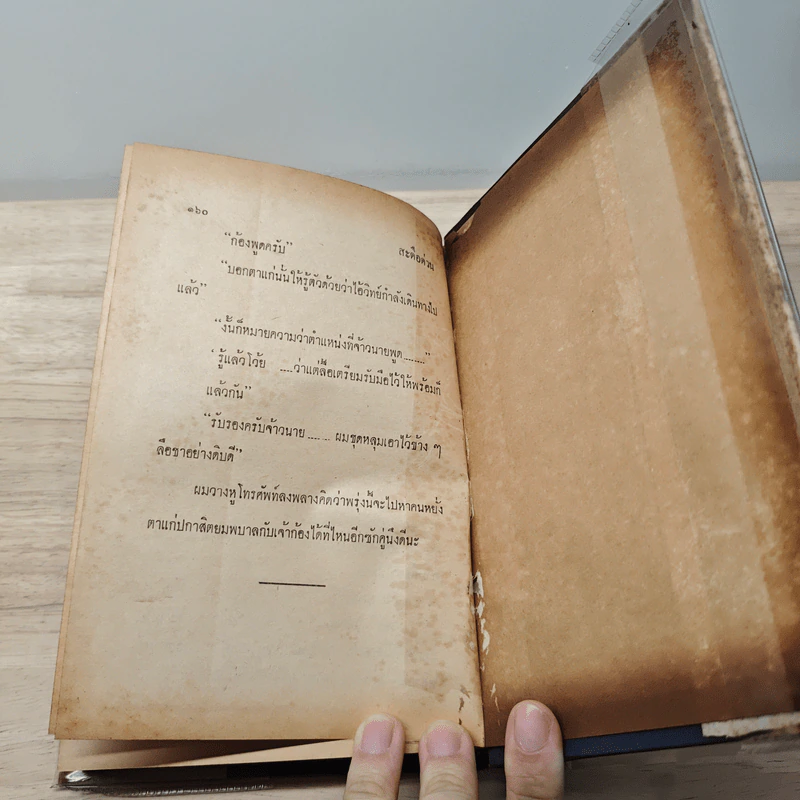 ๑๖๐
สะดือด่วน
“ก้องพูดครับ”
“บอกตาแก่นั้นให้รู้ตัวด้วยว่าไอ้วิทย์กำลังเดินทางไป
แล้ว”
“งั้นก็หมายความว่าตำแหน่งที่จ้าวนายพูด........”
‘รู้แล้วโว้ย ....ว่าแต่ลื้อเตรียมรับมือไว้ให้พร้อมก็
แล้วกัน”
“รับรองครับจ้าวนาย....... ผมขุดหลุมเอาไว้ข้าง ๆ
ลือชาอย่างดิบดี”
ผมวางหูโทรศัพท์ลงพลางคิดว่าพรุ่งนี้จะไปหาคนหยั่ง
ตาแก่ปกาสิตยมพบาลกับเจ้าก้องได้ที่ไหนอีกซักคู่นึงดีนะ